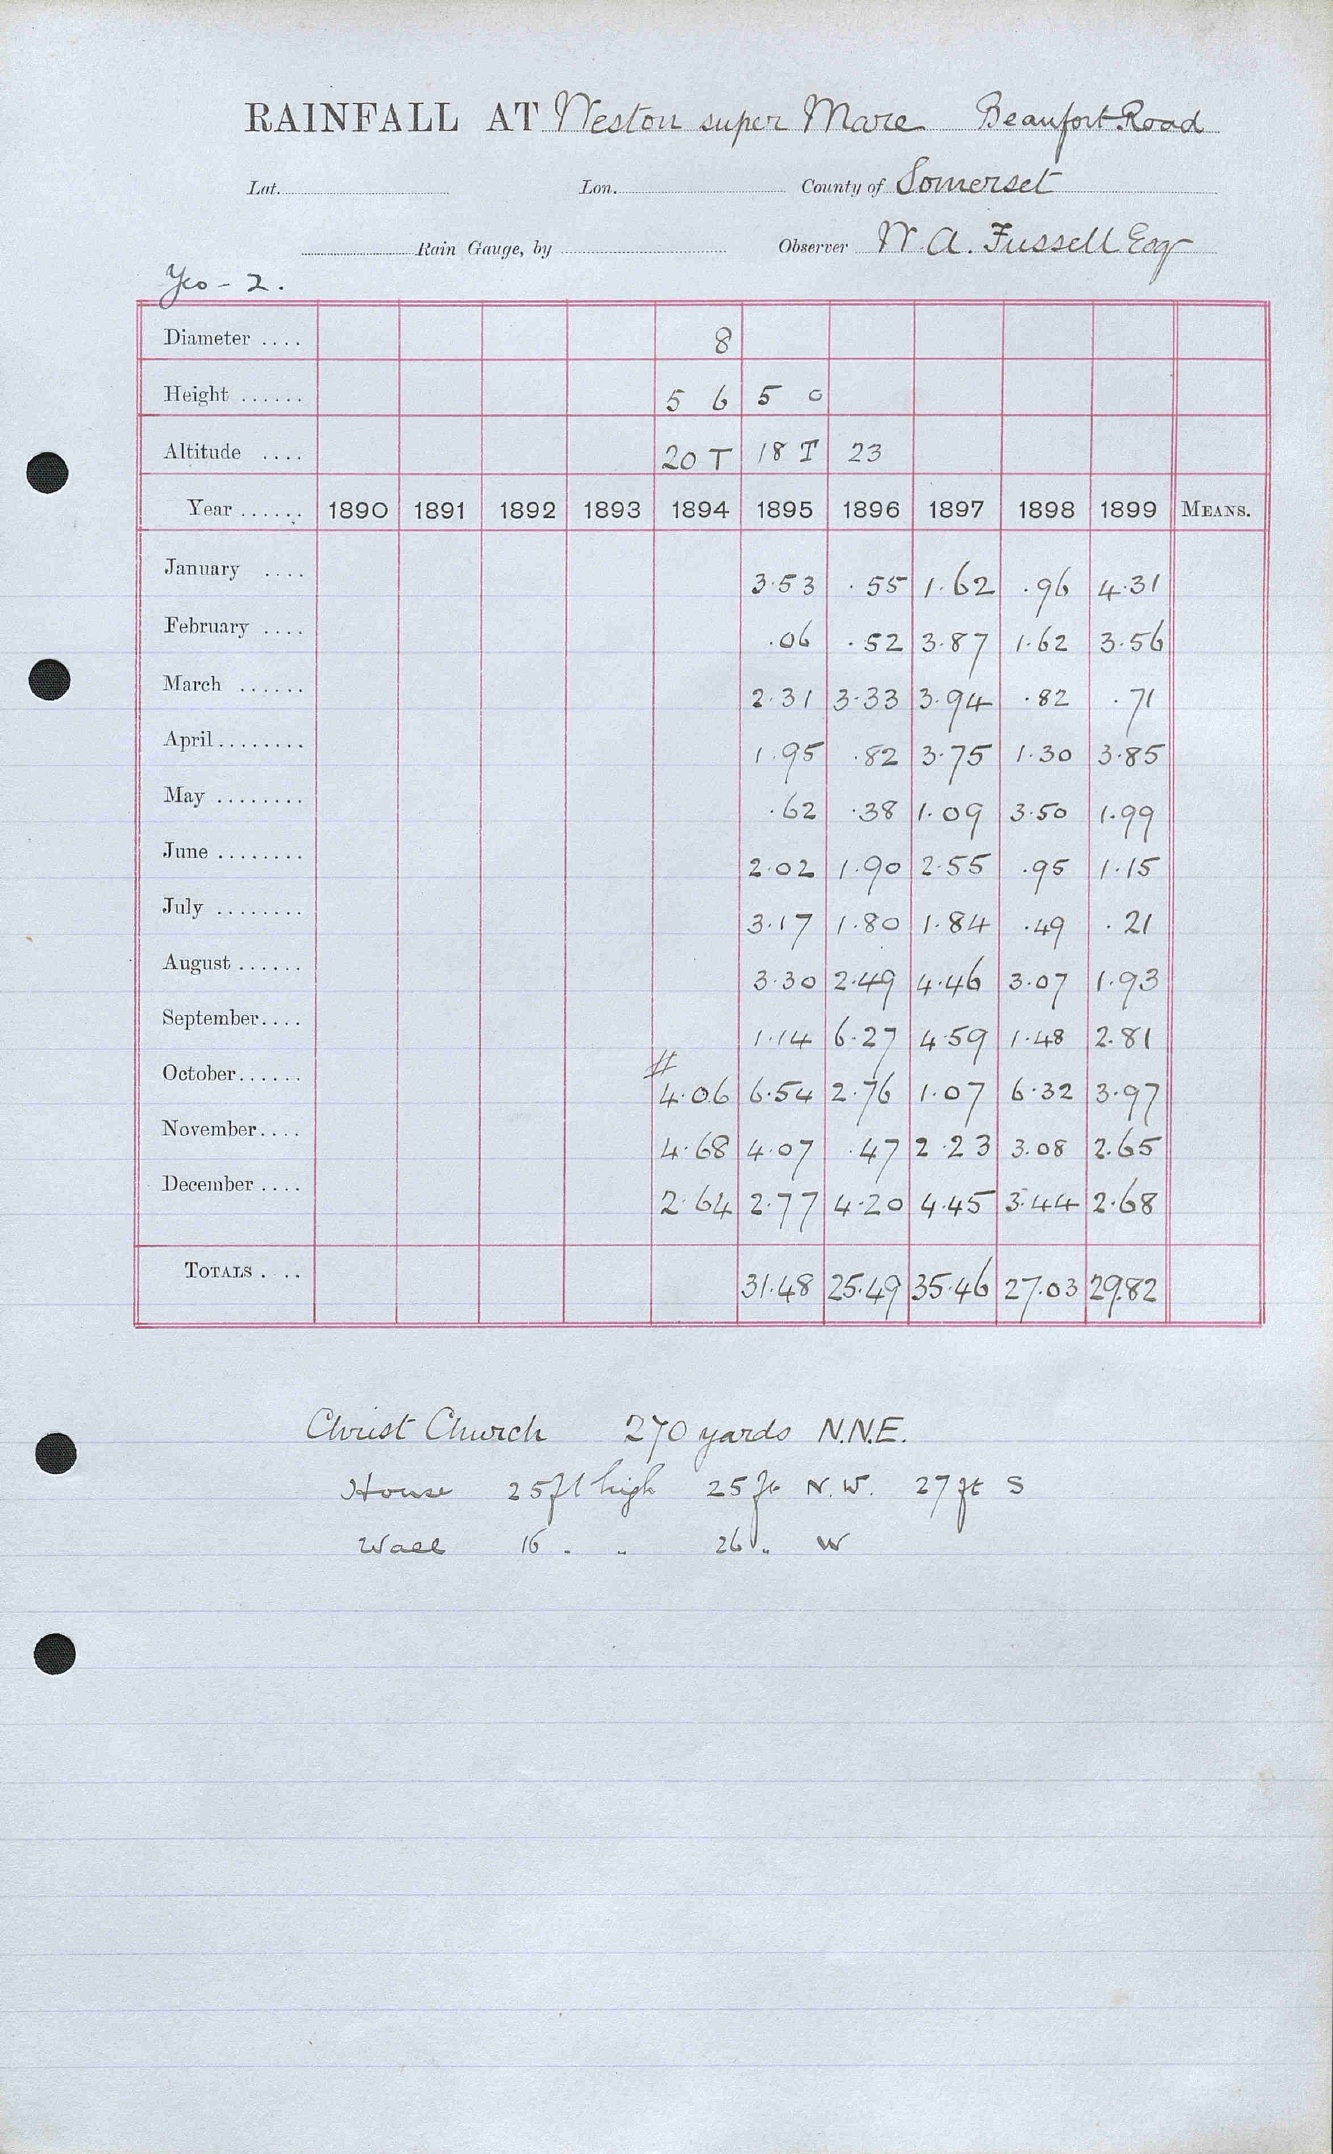 RAINFALL AT Weston super Mare Beaufort Road
Lat. Lon. County of Somerset
Rain Gauge, by Observer W. A. Fussell Esq
Yeo - 2.
Diameter .... 8
Height ...... 5 6 5 0
Altitude .... 20 T 18 T 23
Year ...... 1890 1891 1892 1893 1894 1895 1896 1897 1898 1899 MEANS.
January .... 3.53 .55 1.62 .96 4.31
February .... .06 .52 3.87 1.62 3.56
March ...... 2.31 3.33 3.94 .82 .71
April ........ 1.95 .82 3.75 1.30 3.85
May ........ .62 .38 1.09 3.50 1.99
June ........ 2.02 1.90 2.55 .95 1.15
July ........ 3.17 1.80 1.84 .49 .21
August ...... 3.30 2.49 4.46 3.07 1.93
September .... 1.14 6.27 4.59 1.48 2.81
#
October ...... 4.06 6.54 2.76 1.07 6.32 3.97
November .... 4.68 4.07 .47 2.23 3.08 2.65
December .... 2.64 2.77 4.20 4.45 3.44 2.68
TOTALS .... 31.48 25.49 35.46 27.03 29.82
Christ Church 270 yards N.N.E.
House 25 ft high 25 ft N.W. 27 ft S
Wall 16 " " 26 " W